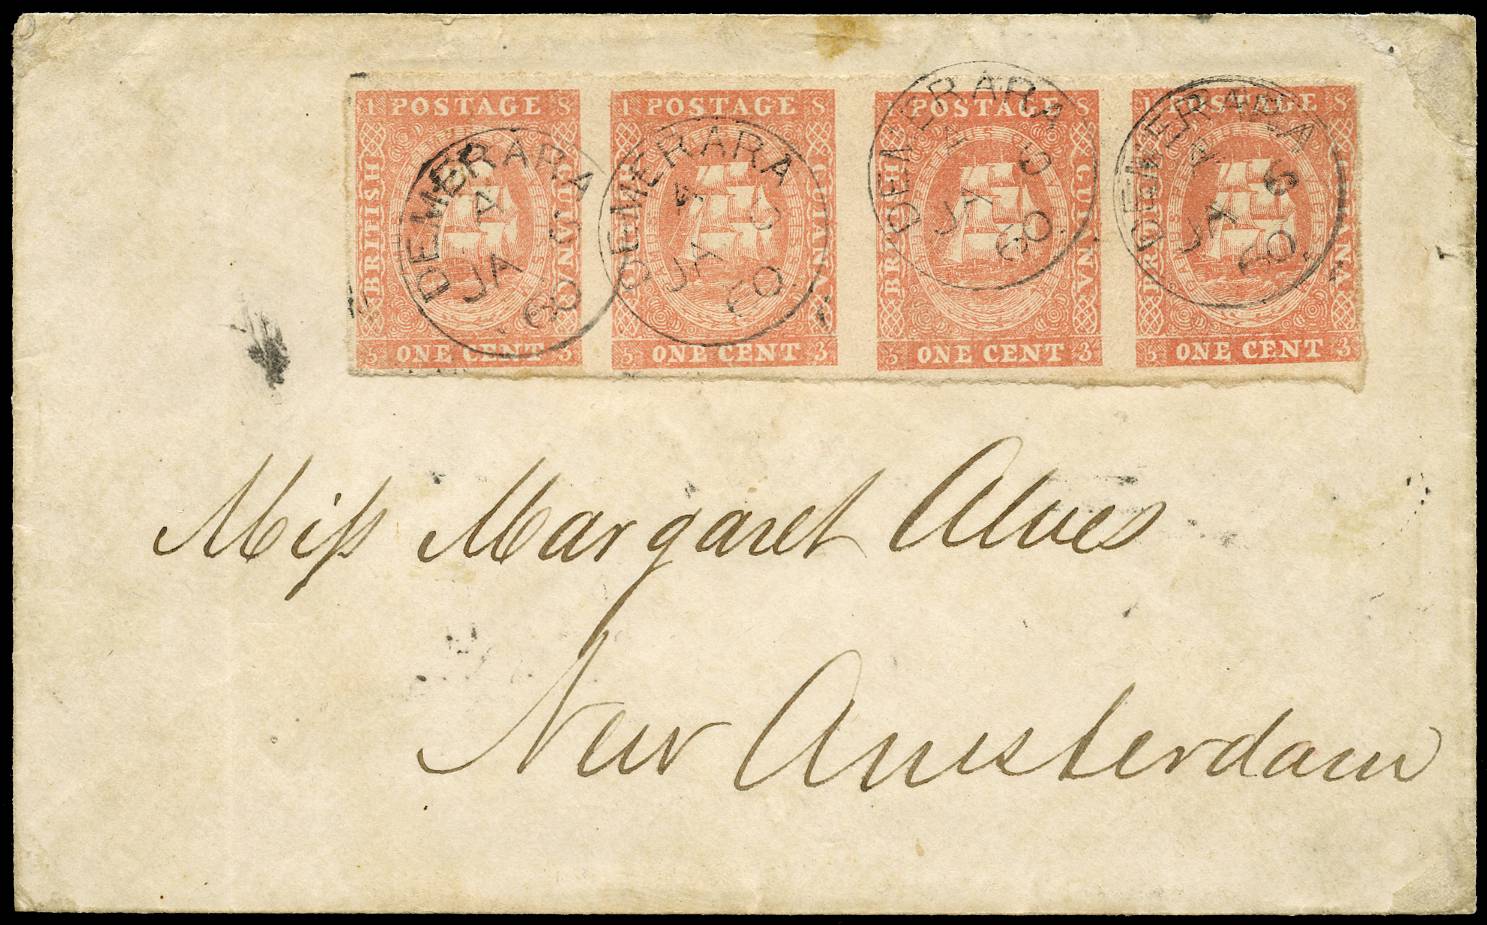 1 POSTAGE 8
BRITISH
GUIANA
5 ONE CENT 3
1 POSTAGE 8
BRITISH
GUIANA
5 ONE CENT 3
POSTAGE 8
BRITISH
GUIANA
5 ONE CENT 3
1 POSTAGE 8
BRITISH
GUIANA
5 ONE CENT 3
DEMERARA
A
JA
60
DEMERARA
A
JA
60
DEMERARA
A
JA
60
DEMERARA
A
JA
60
Miss Margaret Alves
New Amsterdam